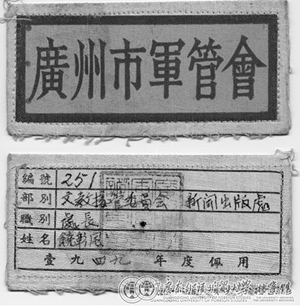 廣州市軍管會
編號 251
部別 文教接管委員会 新闻出版處
職別 處長
姓名 饒彰风
壹九四九年度佩用